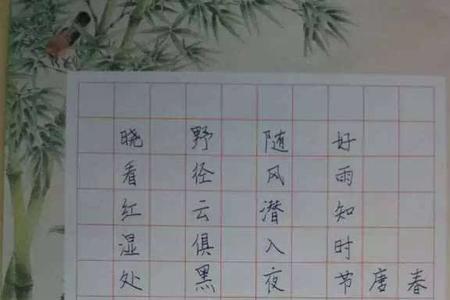 春
唐
好雨知时节
随风潜入夜
野径云俱黑
晓看红湿处